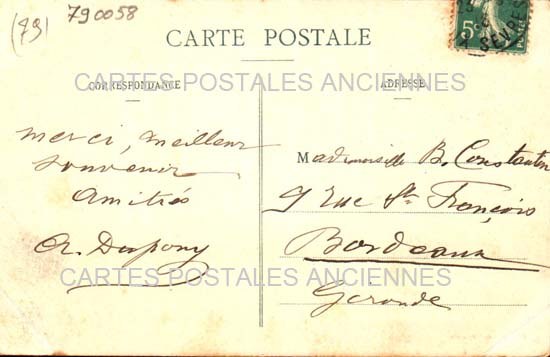 (79)
790058
5c
SEVRES
CARTE POSTALE
CARTES POSTALES ANCIENNES
CORRESPONDANCE
ADRESSE
merci, meilleur
souvenir
amitiés
Mademoiselle B. Constantin
9 rue St François
Bordeaux
CARTES POSTALES ANCIENNES
Gironde